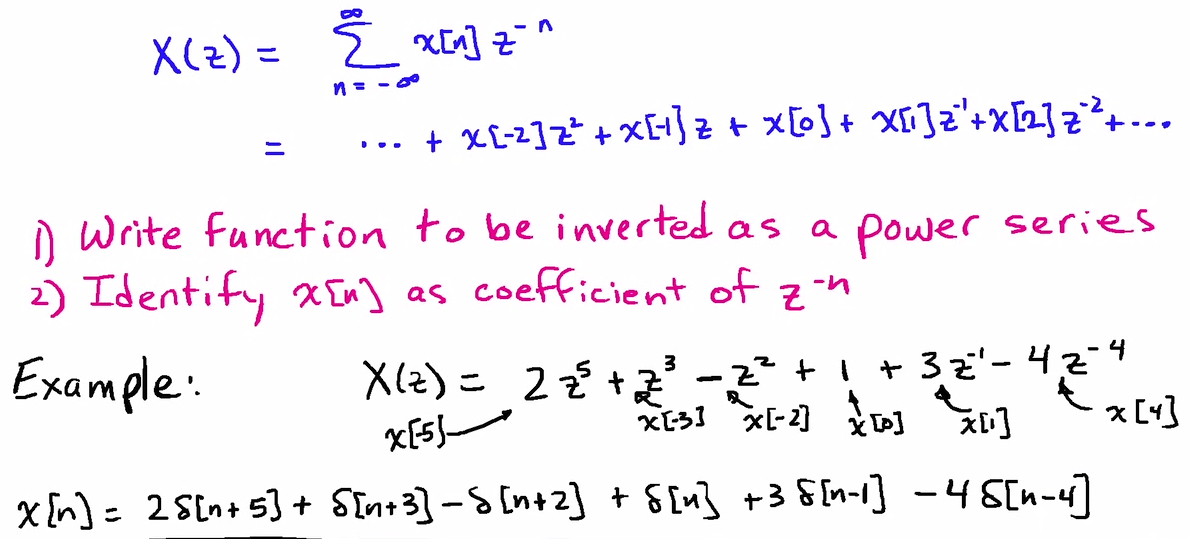 X(z) = ∞ Σ n=-∞ x[n] z^-n
= ... + x[-2]z² + x[-1]z + x[0] + x[1]z^-1 + x[2]z^-2 + ...
1) Write function to be inverted as a power series
2) Identify x[n] as coefficient of z^-n
Example: X(z) = 2z^5 + z^3 - z^2 + 1 + 3z^-1 - 4z^-4
x[-5] x[-3] x[-2] x[0] x[1] x[4]
x[n] = 2δ[n+5] + δ[n+3] - δ[n+2] + δ[n] + 3δ[n-1] - 4δ[n-4]